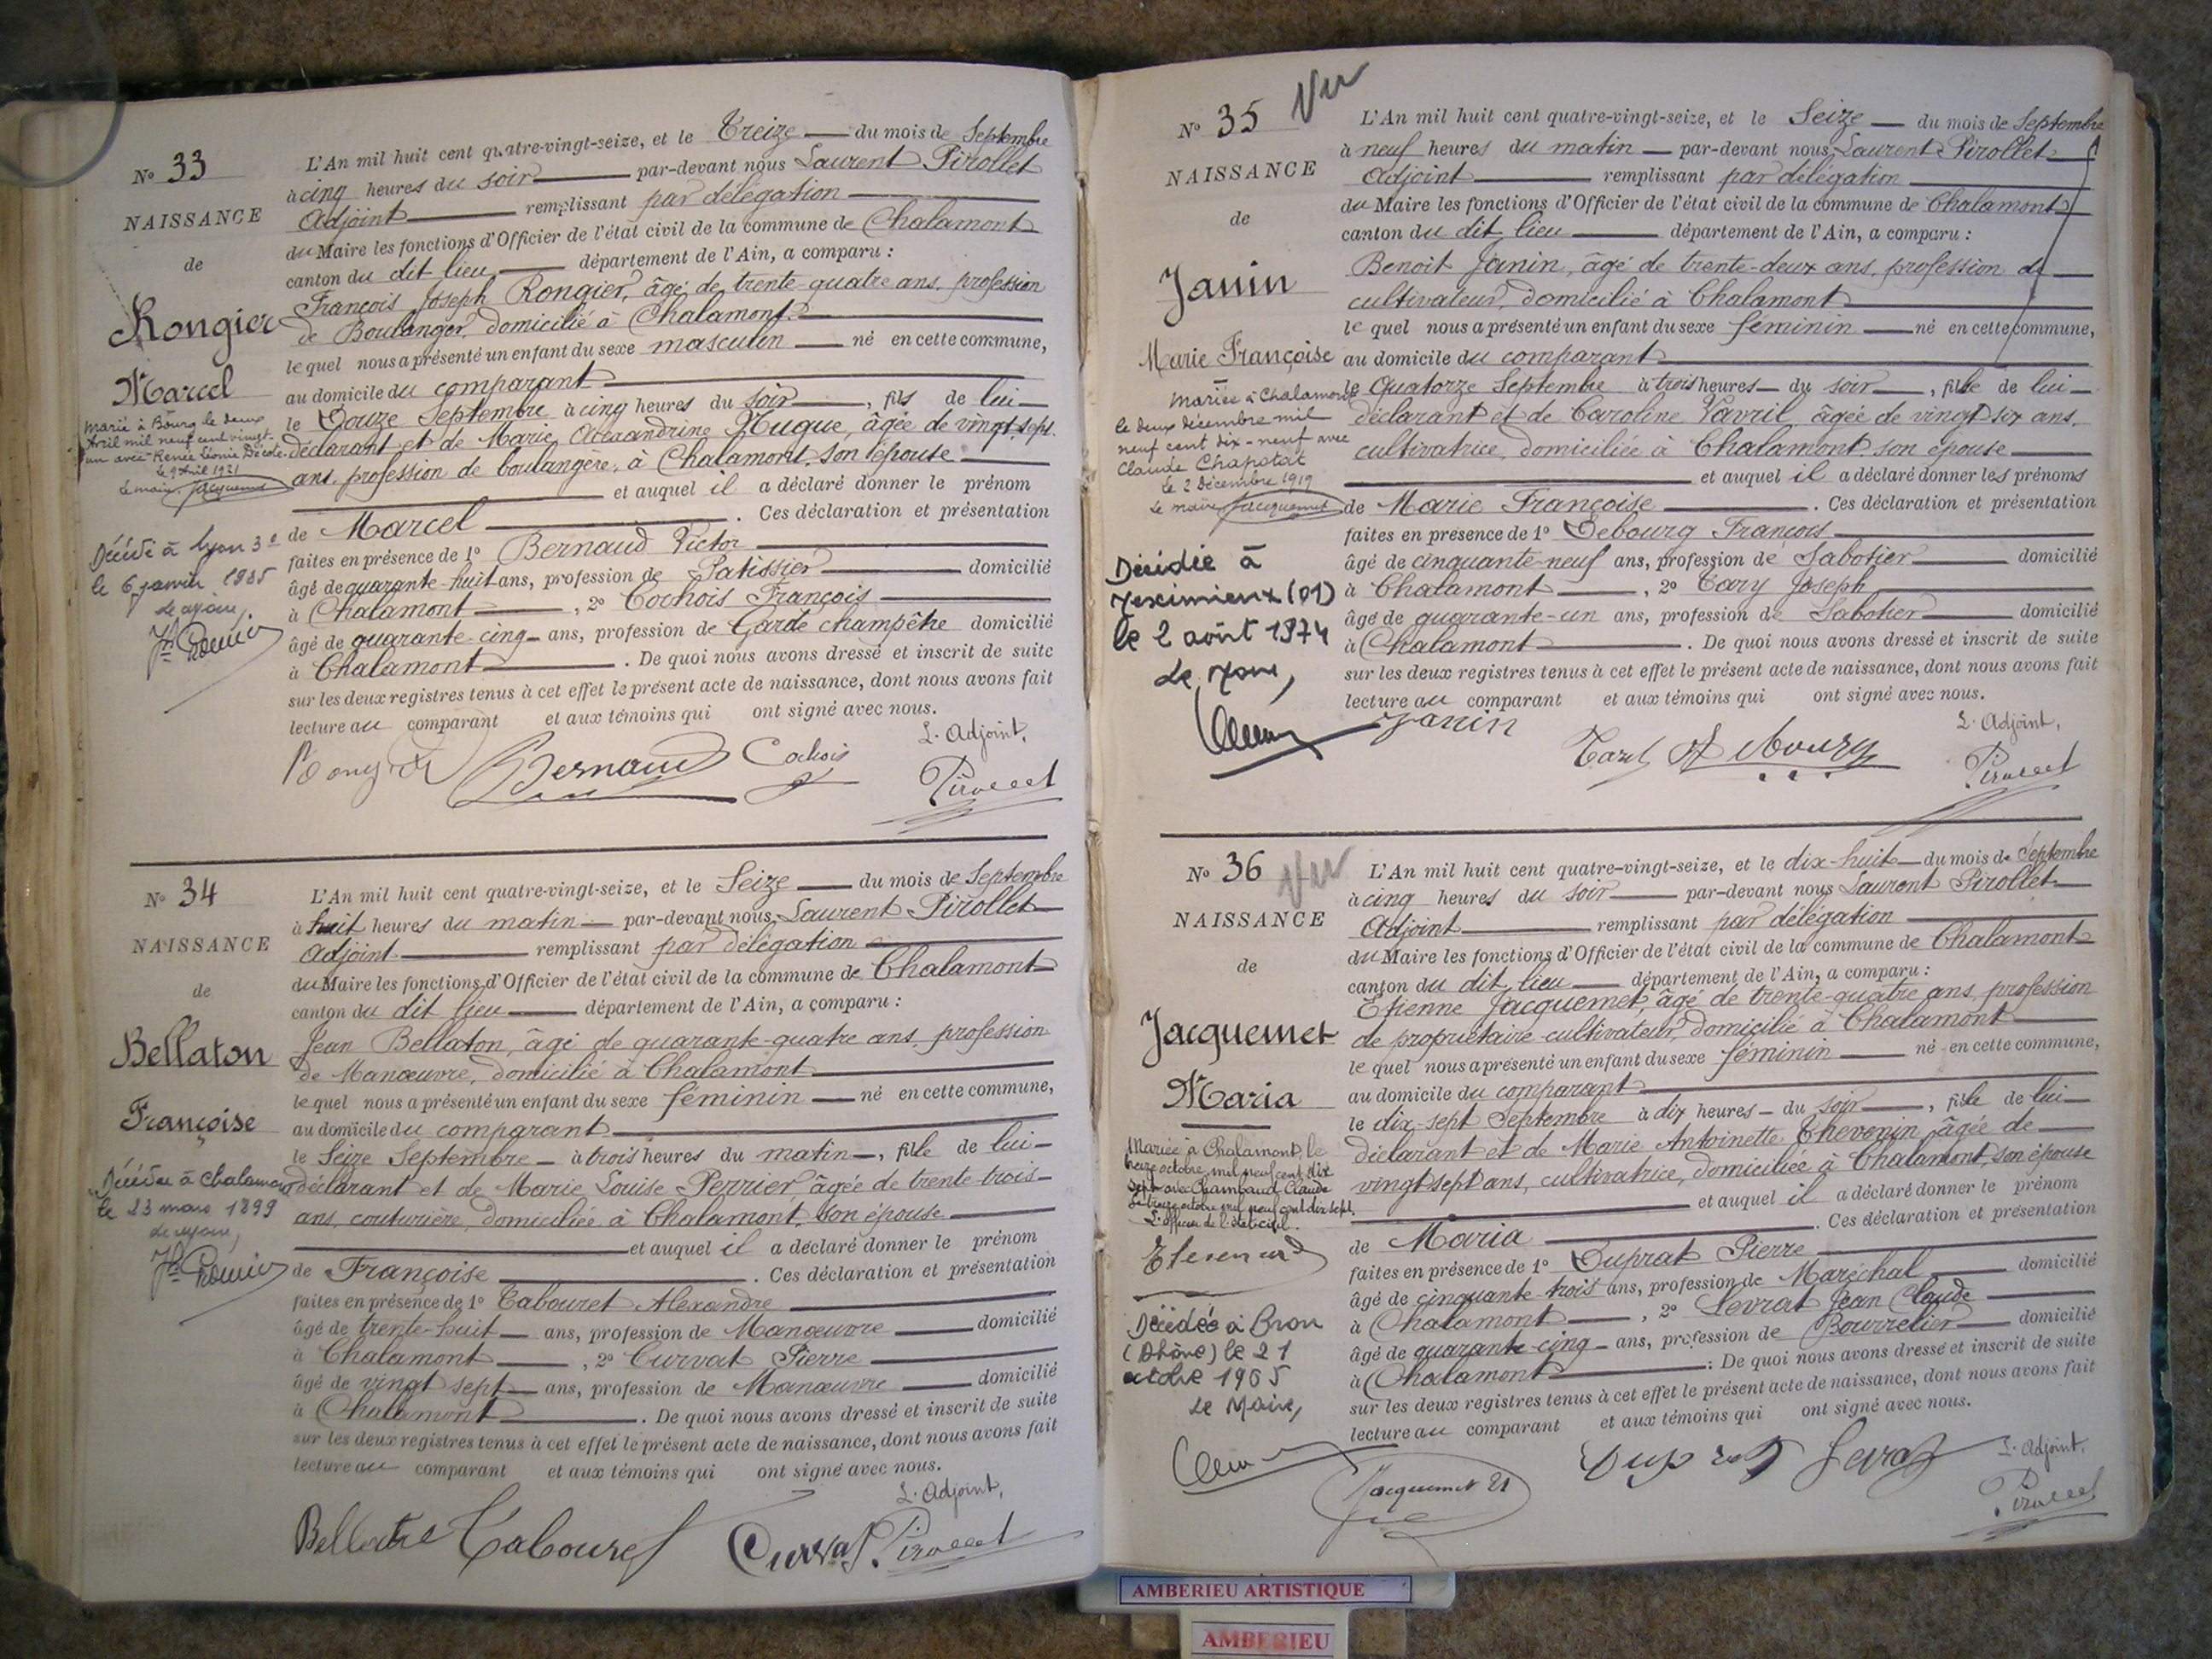 N° 33
NAISSANCE
de
Rongier
Marcel
Marié à Bourg le deux
Avril mil neuf cent vingt-
un avec Renée Léonie Décole
le 9 Avril 1921
Le maire, Jacquemet
Décédé à Lyon 3e
le 6 janvier 1985
Le Maire,
L'An mil huit cent quatre-vingt-seize, et le Treize du mois de Septembre
à cinq heures du soir par-devant nous Laurent Pirollet
Adjoint remplissant par délégation
du Maire les fonctions d'Officier de l'état civil de la commune de Chalamont
canton du dit lieu département de l'Ain, a comparu :
François Joseph Rongier, âgé de trente-quatre ans, profession
de Boulanger, domicilié à Chalamont
le quel nous a présenté un enfant du sexe masculin né en cette commune,
au domicile du comparant
le Douze Septembre à cinq heures du soir, fils de lui
déclarant et de Marie Alexandrine Hugue, âgée de vingt-sept
ans, profession de boulangère, à Chalamont, son épouse
et auquel il a déclaré donner le prénom
de Marcel. Ces déclaration et présentation
faites en présence de 1° Bernaud Victor
âgé de quarante-huit ans, profession de Patissier domicilié
à Chalamont, 2° Cochois François
âgé de quarante-cinq ans, profession de Garde champêtre domicilié
à Chalamont. De quoi nous avons dressé et inscrit de suite
sur les deux registres tenus à cet effet le présent acte de naissance, dont nous avons fait
lecture au comparant et aux témoins qui ont signé avec nous.
L'Adjoint,
Rongier Bernaud Cochois Pirollet
N° 34
NAISSANCE
de
Bellaton
Françoise
Décédée à Chalamont
le 23 mars 1899
Le Maire,
L'An mil huit cent quatre-vingt-seize, et le Seize du mois de Septembre
à huit heures du matin par-devant nous Laurent Pirollet
Adjoint remplissant par délégation
du Maire les fonctions d'Officier de l'état civil de la commune de Chalamont
canton du dit lieu département de l'Ain, a comparu :
Jean Bellaton, âgé de quarante-quatre ans, profession
de Manœuvre, domicilié à Chalamont
le quel nous a présenté un enfant du sexe féminin né en cette commune,
au domicile du comparant
le Seize Septembre à trois heures du matin, fille de lui
déclarant et de Marie Louise Perrier, âgée de trente-trois
ans, couturière, domiciliée à Chalamont, son épouse
et auquel il a déclaré donner le prénom
de Françoise. Ces déclaration et présentation
faites en présence de 1° Tabouret Alexandre
âgé de trente-huit ans, profession de Manœuvre domicilié
à Chalamont, 2° Curvat Pierre
âgé de vingt sept ans, profession de Manœuvre domicilié
à Chalamont. De quoi nous avons dressé et inscrit de suite
sur les deux registres tenus à cet effet le présent acte de naissance, dont nous avons fait
lecture au comparant et aux témoins qui ont signé avec nous.
L'Adjoint,
Bellaton Tabouret Curvat Pirollet
N° 35 Vu
NAISSANCE
de
Janin
Marie Françoise
Mariée à Chalamont
le deux décembre mil
neuf cent dix-neuf avec
Claude Chapotat
Le 2 Décembre 1919
Le maire Jacquemet
Décédée à
Meximieux (01)
le 2 août 1974
Le Maire,
L'An mil huit cent quatre-vingt-seize, et le Seize du mois de Septembre
à neuf heures du matin par-devant nous Laurent Pirollet
Adjoint remplissant par délégation
du Maire les fonctions d'Officier de l'état civil de la commune de Chalamont
canton du dit lieu département de l'Ain, a comparu :
Benoit Janin, âgé de trente-deux ans, profession de
cultivateur, domicilié à Chalamont
le quel nous a présenté un enfant du sexe féminin né en cette commune,
au domicile du comparant
le Quatorze Septembre à trois heures du soir, fille de lui
déclarant et de Caroline Vavril, âgée de vingt-six ans,
cultivatrice, domiciliée à Chalamont, son épouse
et auquel il a déclaré donner les prénoms
de Marie Françoise. Ces déclaration et présentation
faites en présence de 1° Debourg François
âgé de cinquante-neuf ans, profession de Sabotier domicilié
à Chalamont, 2° Tary Joseph
âgé de quarante-un ans, profession de Sabotier domicilié
à Chalamont. De quoi nous avons dressé et inscrit de suite
sur les deux registres tenus à cet effet le présent acte de naissance, dont nous avons fait
lecture au comparant et aux témoins qui ont signé avec nous.
L'Adjoint,
Janin Debourg Pirollet
N° 36 Vu
NAISSANCE
de
Jacquemet
Maria
Mariée à Chalamont, le
treize octobre mil neuf cent dix
sept avec Chambaud Claude
Le treize octobre mil neuf cent dix sept.
L'officier de l'état civil.
Décédée à Bron
(Rhône) le 21
octobre 1965
Le Maire,
L'An mil huit cent quatre-vingt-seize, et le dix-huit du mois de Septembre
à cinq heures du soir par-devant nous Laurent Pirollet
Adjoint remplissant par délégation
du Maire les fonctions d'Officier de l'état civil de la commune de Chalamont
canton du dit lieu département de l'Ain, a comparu :
Etienne Jacquemet, âgé de trente-quatre ans, profession
de propriétaire-cultivateur, domicilié à Chalamont
le quel nous a présenté un enfant du sexe féminin né en cette commune,
au domicile du comparant
le dix-sept Septembre à dix heures du soir, fille de lui
déclarant et de Marie Antoinette Thevenin, âgée de
vingt sept ans, cultivatrice, domiciliée à Chalamont, son épouse
et auquel il a déclaré donner le prénom
de Maria. Ces déclaration et présentation
faites en présence de 1° Duprat Pierre
âgé de cinquante-trois ans, profession de Maréchal domicilié
à Chalamont, 2° Sevrat Jean Claude
âgé de quarante-cinq ans, profession de Bourrelier domicilié
à Chalamont. De quoi nous avons dressé et inscrit de suite
sur les deux registres tenus à cet effet le présent acte de naissance, dont nous avons fait
lecture au comparant et aux témoins qui ont signé avec nous.
L'Adjoint,
Jacquemet Duprat Sevrat Pirollet
AMBERIEU ARTISTIQUE
AMBERIEU